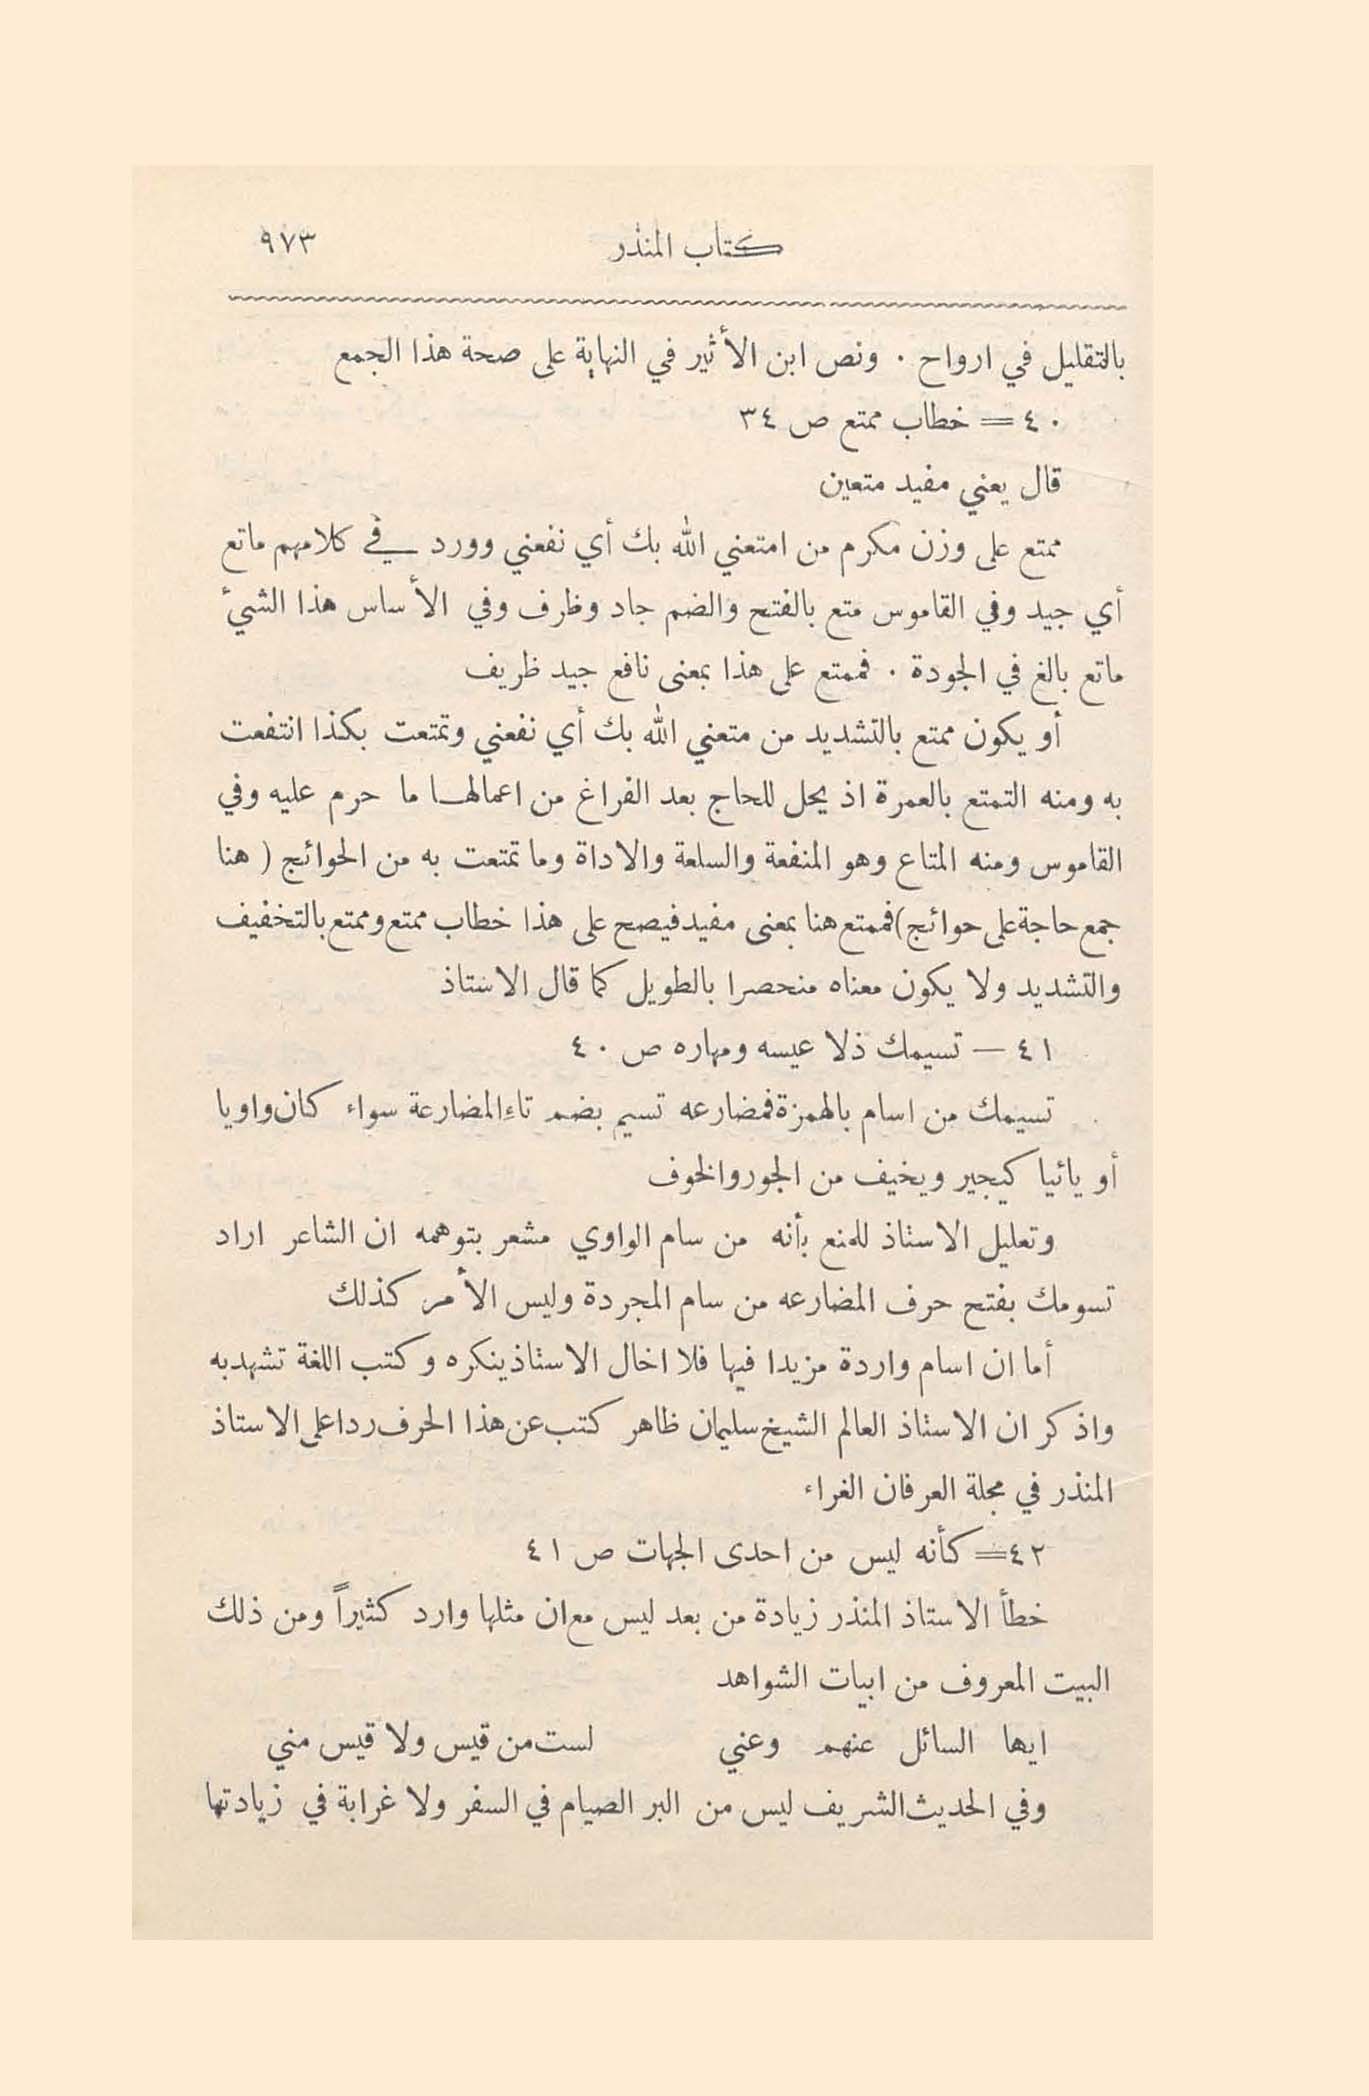 كتاب المنذر ٩٧٣
بالتقليل في ارواح . ونص ابن الأثير في النهاية على صحة هذا الجمع
٤٠ = خطاب ممتع ص ٣٤
قال يعني مفيد متعين
ممتع على وزن مكرم من امتعني الله بك أي نفعني وورد في كلامهم ماتع
أي جيد وفي القاموس متع بالفتح والضم جاد وظرف وفي الأساس هذا الشيئ
ماتع بالغ في الجودة . فممتع على هذا بمعنى نافع جيد ظريف
أو يكون ممتع بالتشديد من متعني الله بك أي نفعني وتمتعت بكذا انتفعت
به ومنه التمتع بالعمرة اذ يحل للحاج بعد الفراغ من اعمالها ما حرم عليه وفي
القاموس ومنه المتاع وهو المنفعة والسلعة والاداة وما تمتعت به من الحوائج ( هنا
جمع حاجة على حوائج) فممتع هنا بمعنى مفيد فيصح على هذا خطاب ممتع وممتع بالتخفيف
والتشديد ولا يكون معناه منحصرا بالطويل كما قال الاستاذ
٤١ — تسيمك ذلا عيسه ومهاره ص ٤٠
تسيمك من اسام بالهمزة فمضارعه تسيم بضم تاء المضارعة سواء كان واويا
أو يائيا كيجير ويخيف من الجور والخوف
وتعليل الاستاذ للمنع بأنه من سام الواوي مشعر بتوهمه ان الشاعر اراد
تسومك بفتح حرف المضارعه من سام المجردة وليس الأمر كذلك
أما ان اسام واردة مزيدا فيها فلا اخال الاستاذ ينكره وكتب اللغة تشهد به
واذكر ان الاستاذ العالم الشيخ سليمان ظاهر كتب عن هذا الحرف ردا على الاستاذ
المنذر في مجلة العرفان الغراء
٤٢ = كأنه ليس من احدى الجهات ص ٤١
خطأ الاستاذ المنذر زيادة من بعد ليس مع ان مثلها وارد كثيراً ومن ذلك
البيت المعروف من ابيات الشواهد
ايها السائل عنهم وعني لست من قيس ولا قيس مني
وفي الحديث الشريف ليس من البر الصيام في السفر ولا غرابة في زيادتها